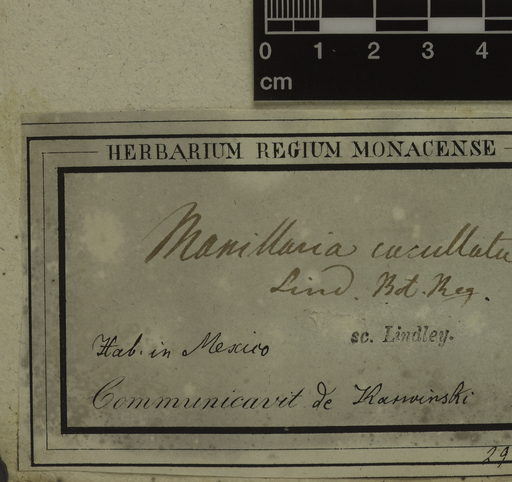 0 1 2 3 4
cm
HERBARIUM REGIUM MONACENSE
Maxillaria cucullata
Lind. Bot. Reg.
sc. Lindley.
Hab. in Mexico
Communicavit de Karwinski
29